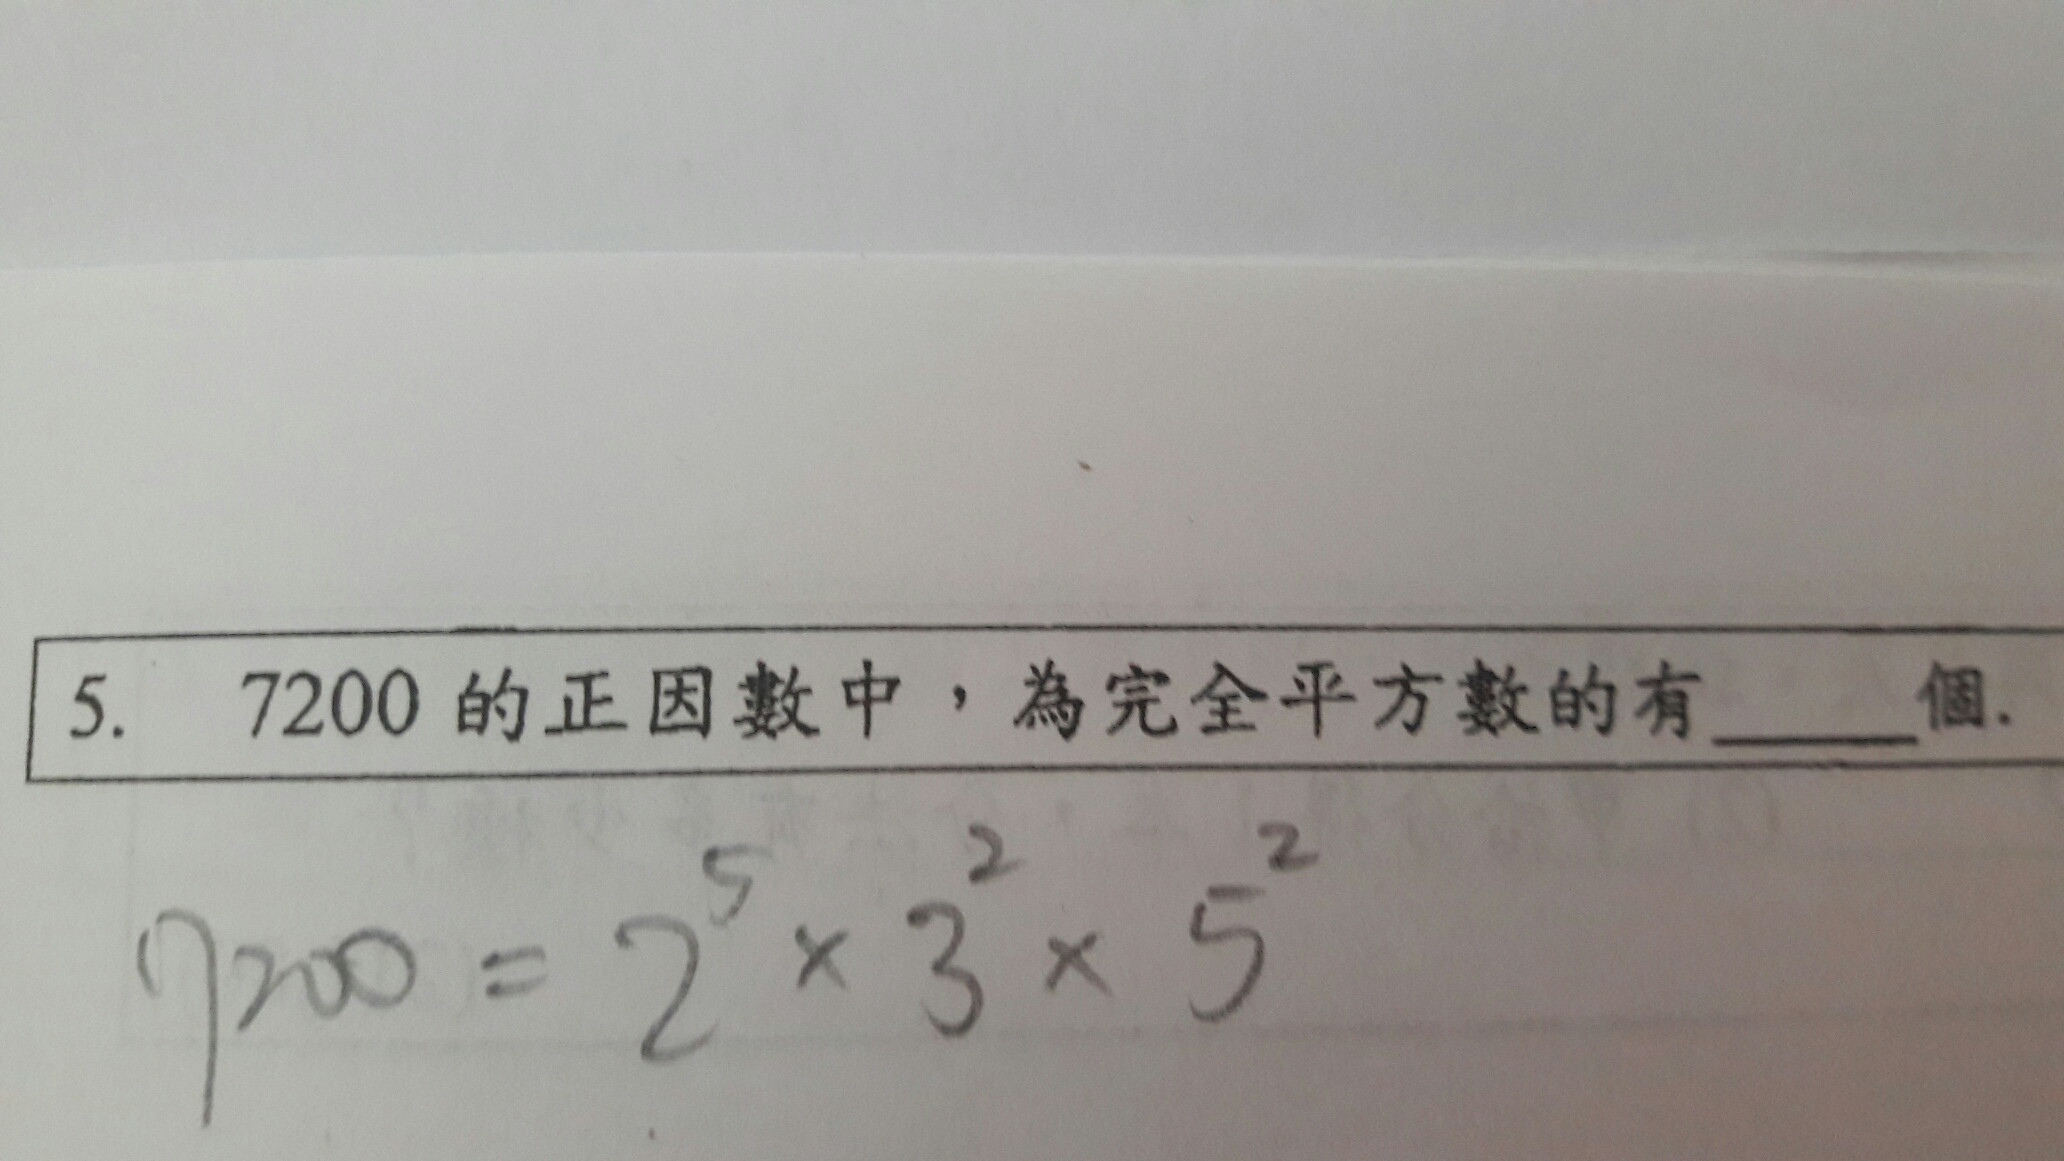 5. 7200 的正因數中，為完全平方數的有_____個.
7200 = 2⁵ × 3² × 5²